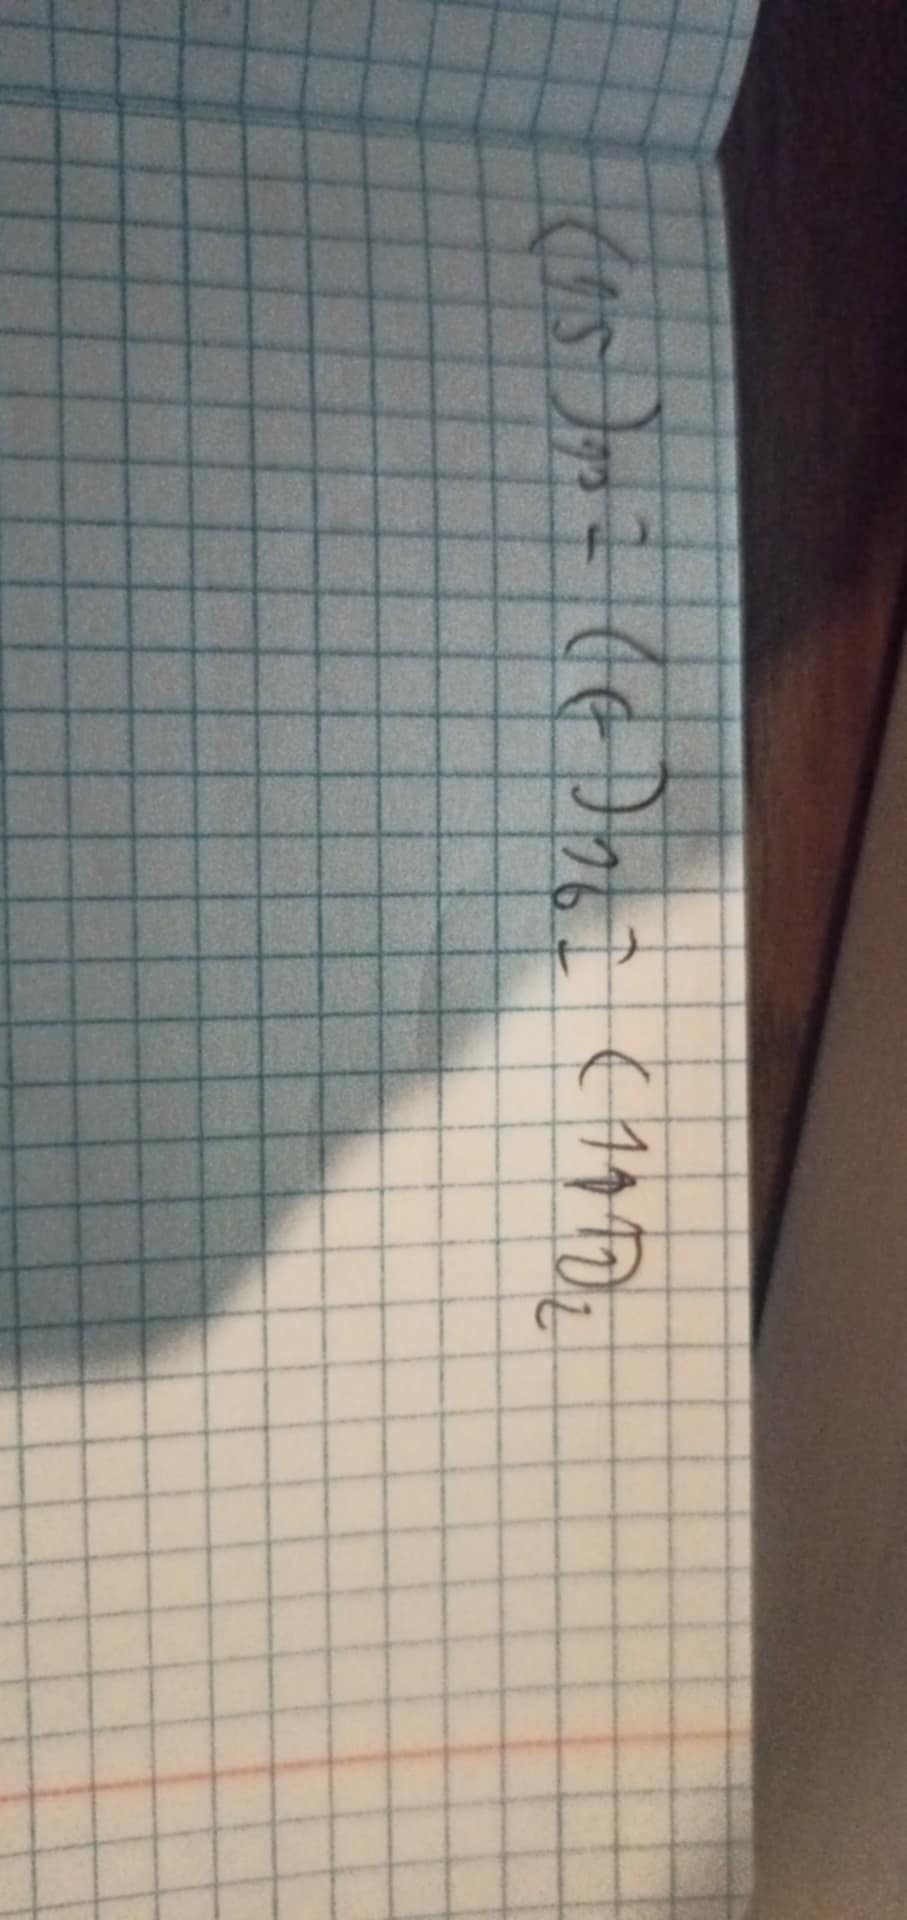 (15)10 = (F)16 = (1111)2